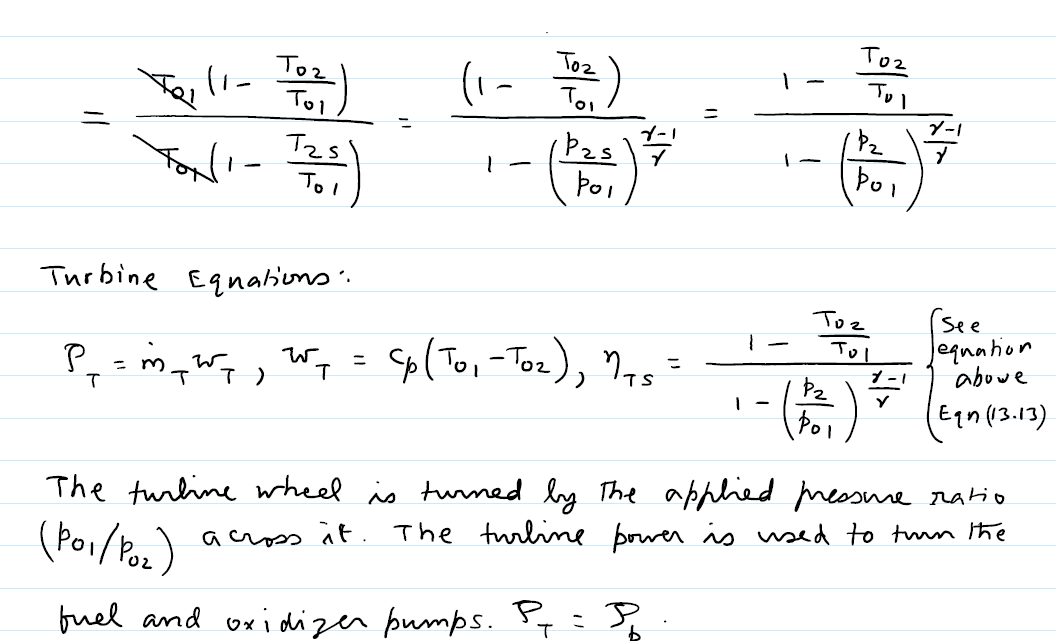 = T₀₁(1 - T₀₂/T₀₁) / T₀₁(1 - T₂s/T₀₁) = (1 - T₀₂/T₀₁) / (1 - (p₂s/p₀₁)^((γ-1)/γ)) = (1 - T₀₂/T₀₁) / (1 - (p₂/p₀₁)^((γ-1)/γ))
Turbine Equations:
P_T = ṁ_T w_T, w_T = Cp(T₀₁ - T₀₂), η_TS = (1 - T₀₂/T₀₁) / (1 - (p₂/p₀₁)^((γ-1)/γ)) { See equation above Eqn (13.13)
The turbine wheel is turned by the applied pressure ratio
(p₀₁/p₀₂) across it. The turbine power is used to turn the
fuel and oxidizer pumps. P_T = P_p.